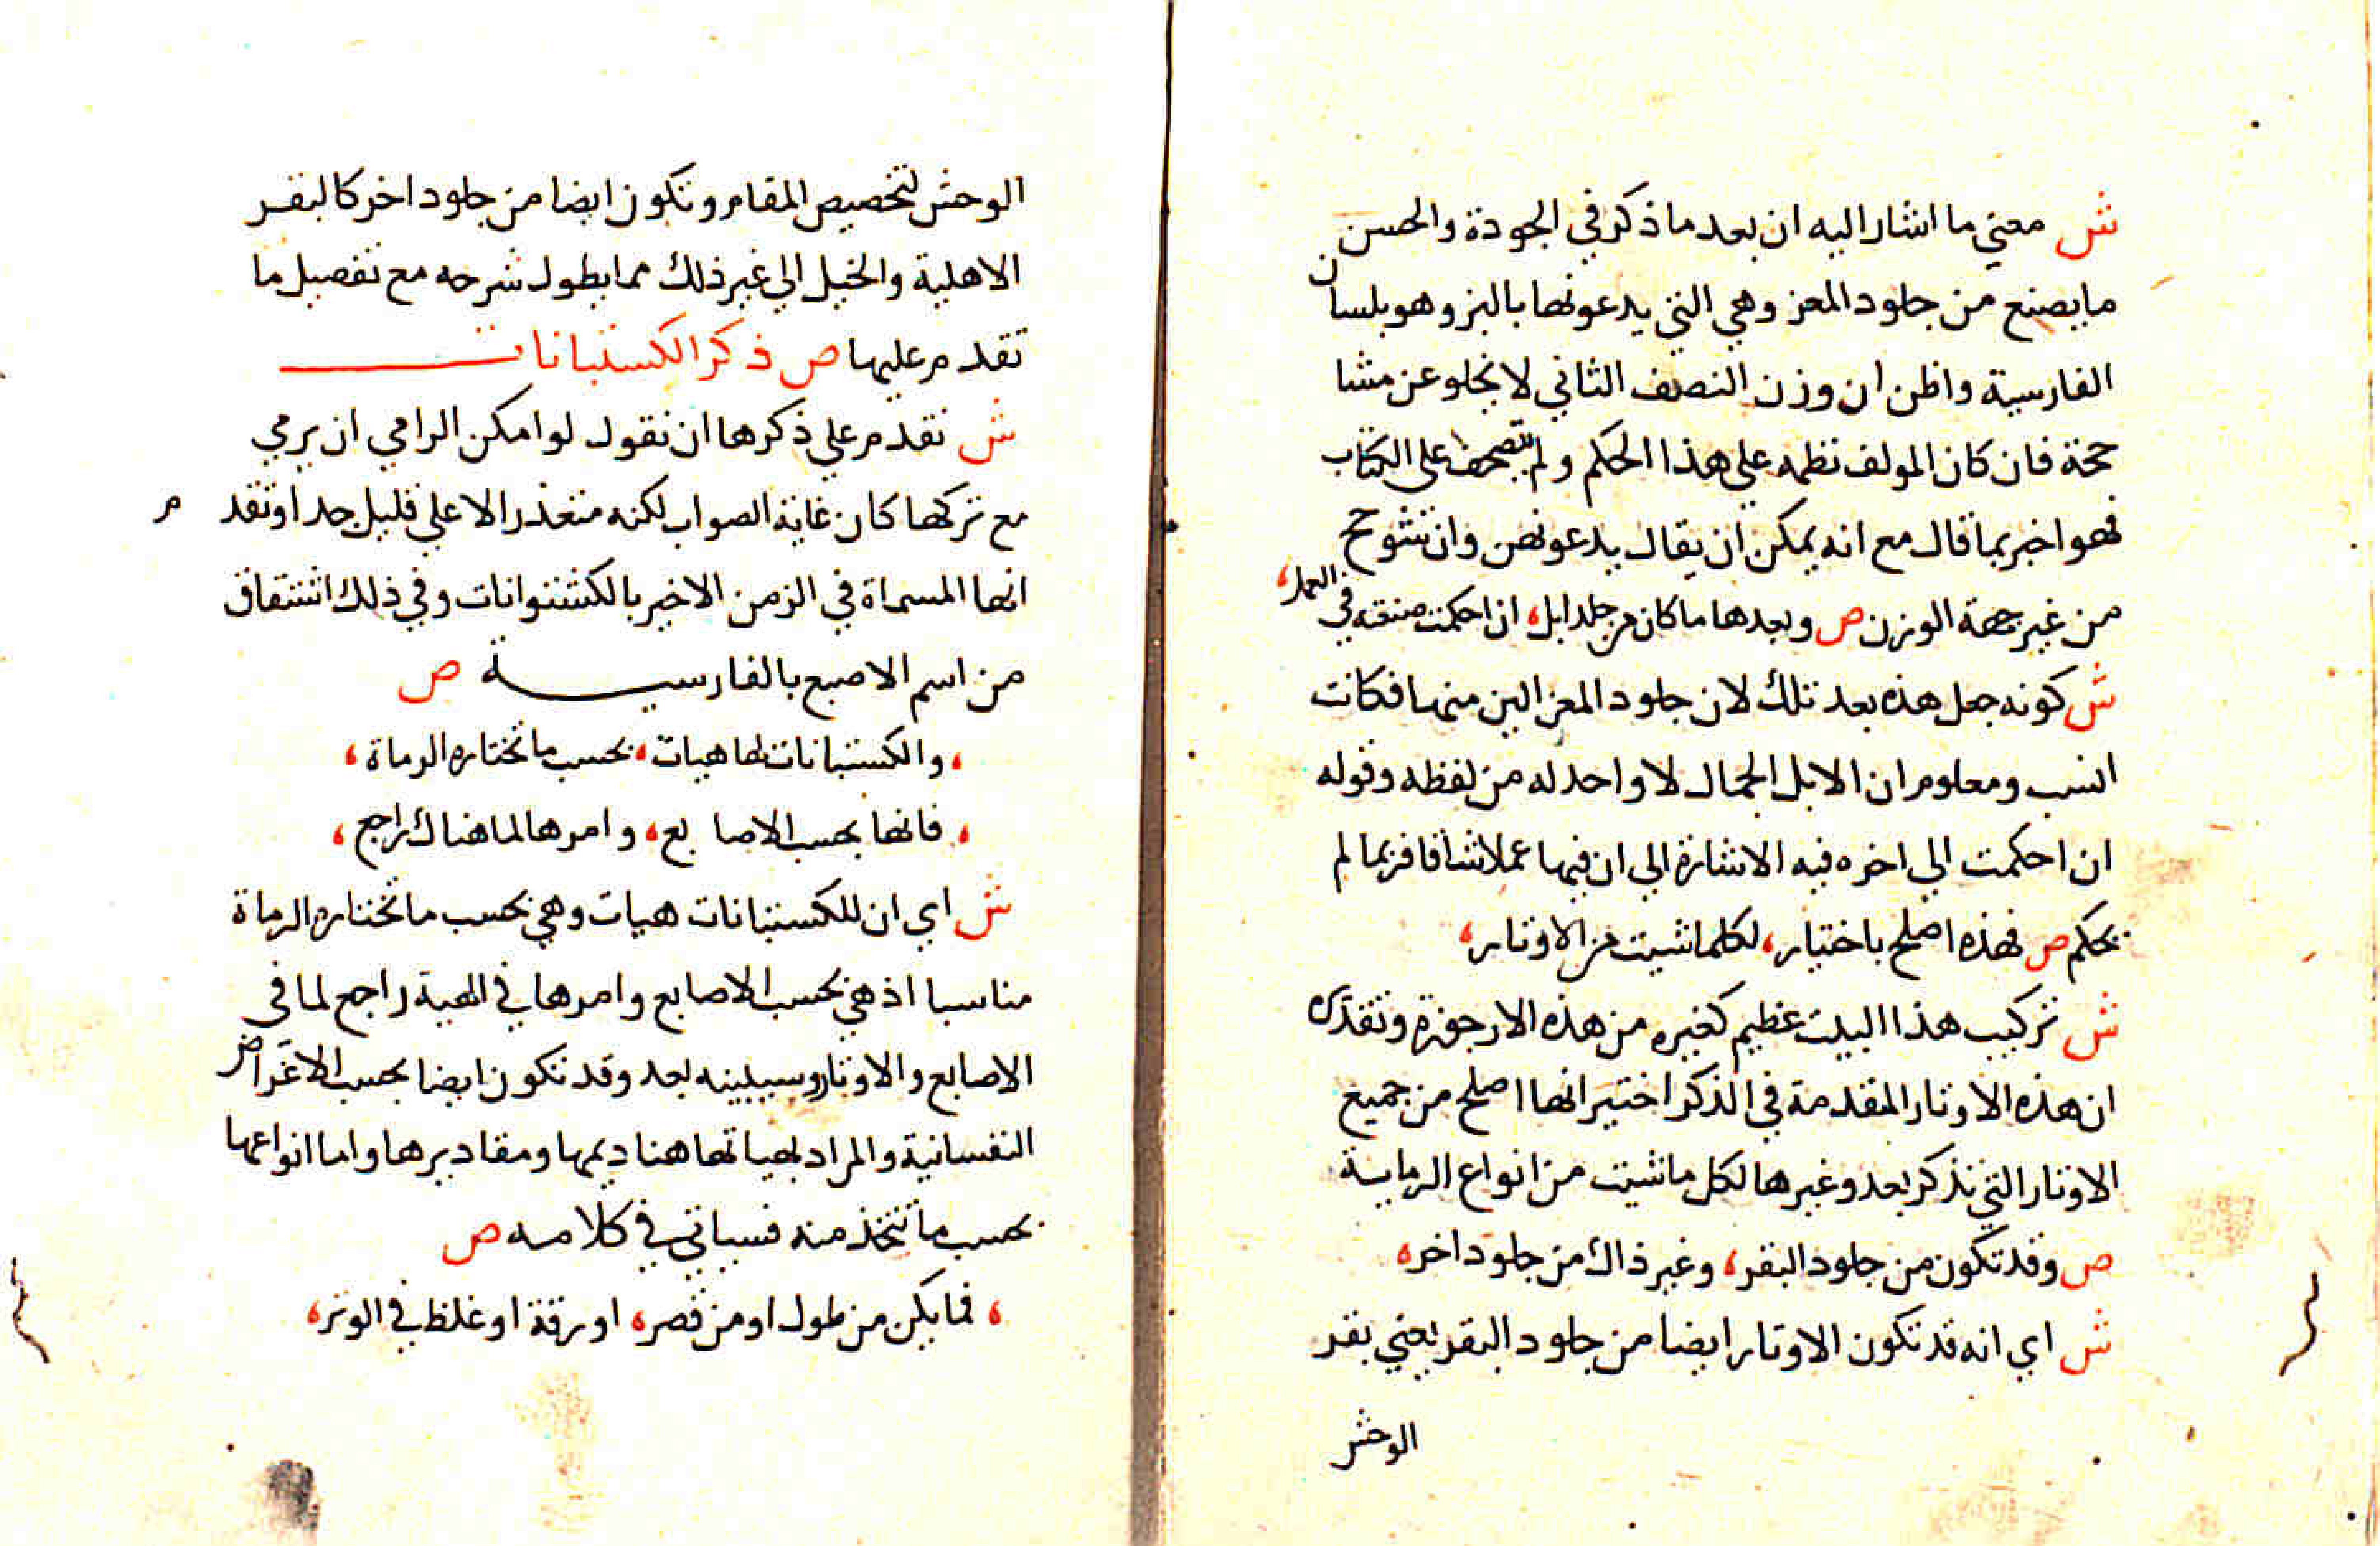 ش معني ما اشار اليه ان بعد ما ذكر في الجودة والحسن
ما يصنع من جلود المعز وهي التي يدعونها بالبز وهو بلسان
الفارسية واظن ان وزن النصف الثاني لا يخلو عن مشا
ححة فان كان المولف نظمه علي هذا الحكم ولم علي الكتاب
فهو اخبر بما قال مع انه يمكن ان يقال يدعونهن وان تشوحح
من غير جهة الوزن ص وبعدها ما كان من جلد ابل، ان احكمت صنعته في العمل،
ش كونه جعل هذه بعد تلك لان جلود المعز الين منها فكانت
انسب ومعلوم ان الابل الجمال لا واحد له من لفظه وقوله
ان احكمت الي اخره فيه الاشارة الي ان فيها عملا شاقا فربما لم
يحكم ص فهذه اصلح باختيار، لكلما شيت من الاوتار،
ش تركيب هذا البيت عظيم كغيره من هذه الارجوزة
ان هذه الاوتار المتقدمة في الذكر اختير انها اصلح من جميع
الاوتار التي تذكر بعد وغيرها لكل ما شيت من انواع الرماية
ص وقد تكون من جلود البقر، وغير ذاك من جلود اخر،
ش اي انه قد تكون الاوتار ايضا من جلود البقر يعني بقر
الوحش
الوحش لتخصيص المقام وتكون ايضا من جلود اخر كالبقر
الاهلية والخيل الي غير ذلك مما يطول شرحه مع تفصيل ما
تقدم عليها ص ذكر الكستبانات
ش تقدم علي ذكرها ان نقول لو امكن الرامي ان يرمي
مع تركها كان غاية الصواب لكنه متعذر الا علي قليل جدا وتقد م
انها المسماة في الزمن الاخير بالكشتوانات وفي ذلك اشتقاق
من اسم الاصبع بالفارسية ص
، والكستبانات لها هيات، بحسب ما تختاره الرماة،
، فانها بحسب الاصابع، وامرها لما هناك راجع،
ش اي ان للكستبانات هيات وهي بحسب ما تختاره الرماة
مناسبا اذ هي بحسب الاصابع وامرها في الهية راجع لما في
الاصابع والاوتار وسيبينه بعد وقد تكون ايضا بحسب الاغراض
النفسانية والمراد بهياتها هنا ديمها ومقاديرها واما انواعها
بحسب ما تتخذ منه فسياتي في كلامه ص
، فما يكن من طول او من قصر، او رقة او غلظ في الوتر،